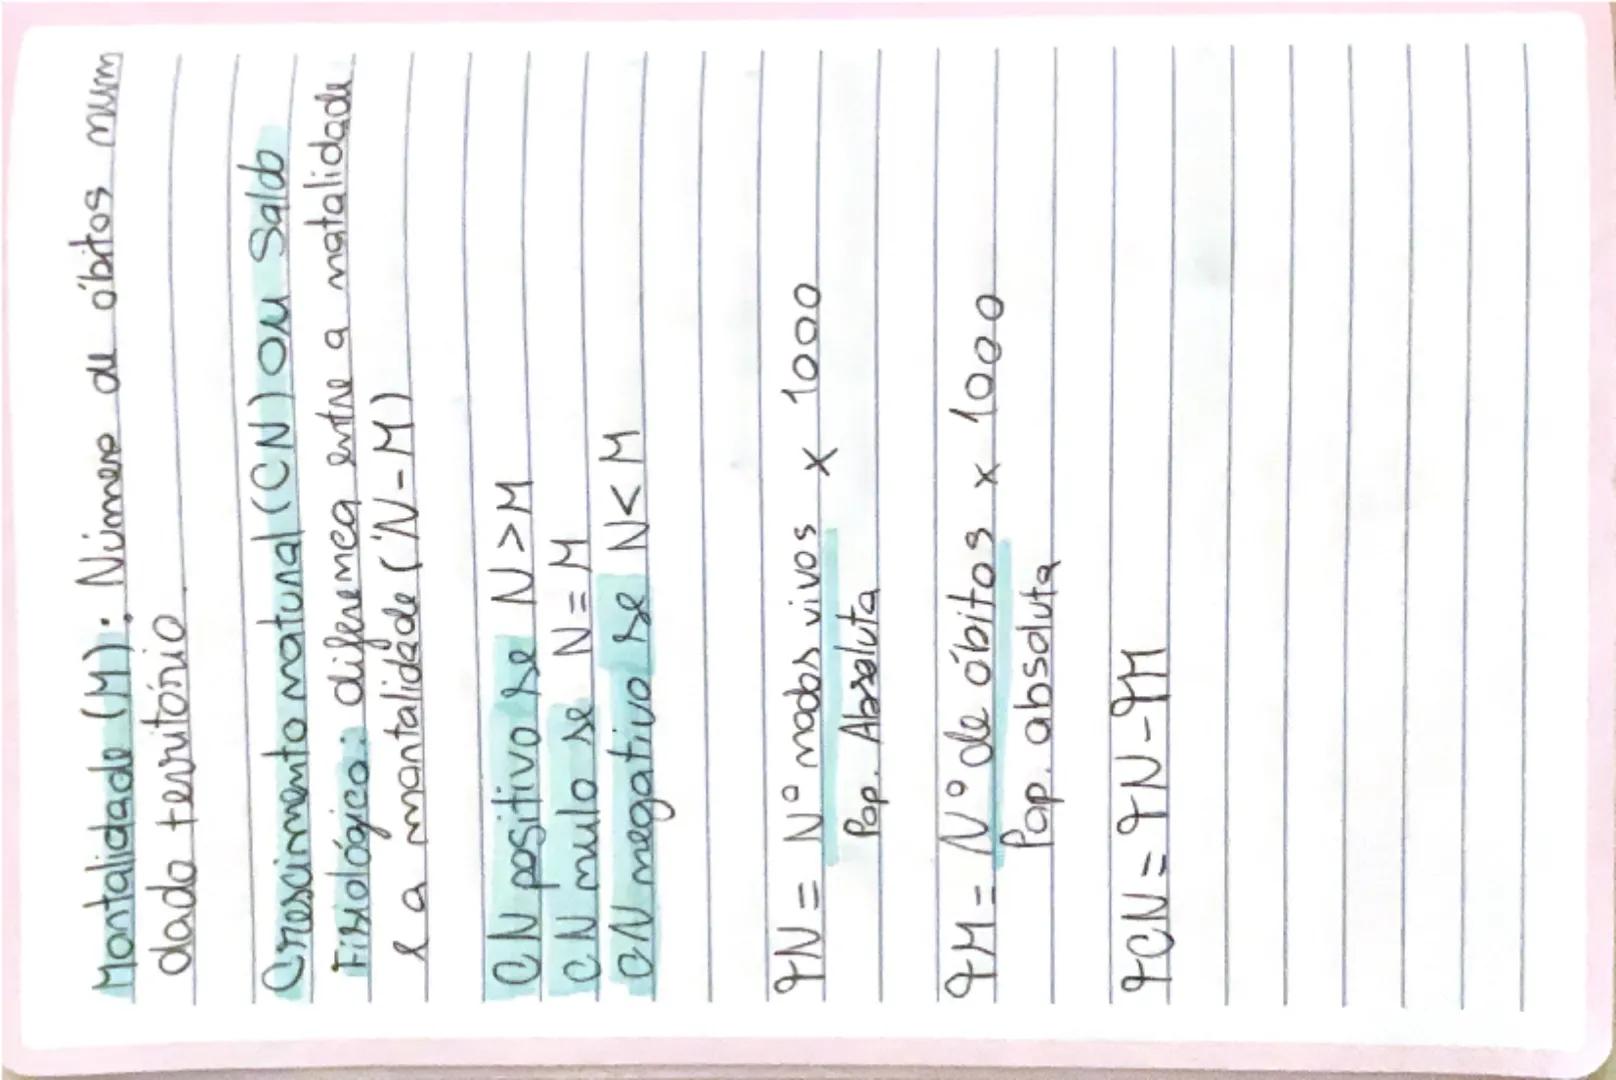 Mortalidade (M): Número de óbitos num
dado território
Crescimento natural (CN) ou Saldo
Fisiológico: diferença entre a natalidade
e a mortalidade (N-M)
CN positivo se N>M
CN nulo se N=M
CN negativo se N<M
TN = Nº nados vivos x 1000
Pop. Absoluta
TM = Nº de óbitos x 1000
Pop. absoluta
TCN = TN-TM